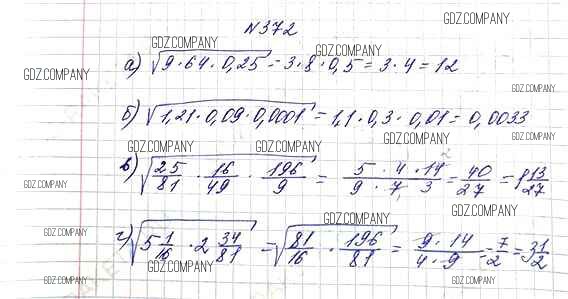 N 372
GDZ.COMPANY
GDZ.COMPANY GDZ.COMPANY
GDZ.COMPANY
а) √9·64·0,25 = 3·8·0,5 = 3·4 = 12
GDZ.COMPANY GDZ.COMPANY
б) √1,21·0,09·0,0001 = 1,1·0,3·0,01 = 0,0033
GDZ.COMPANY
GDZ.COMPANY GDZ.COMPANY
в) √25/81 · 16/49 · 196/9 = 5·4·14/9·7·3 = 40/27 = 1 13/27
GDZ.COMPANY
GDZ.COMPANY GDZ.COMPANY
г) √5 1/16 · 2 34/81 = √81/16 · 196/81 = 9·14/4·9 = 7/2 = 3 1/2
GDZ.COMPANY
GDZ.COMPANY GDZ.COMPANY
GDZ.COMPANY GDZ.COMPANY